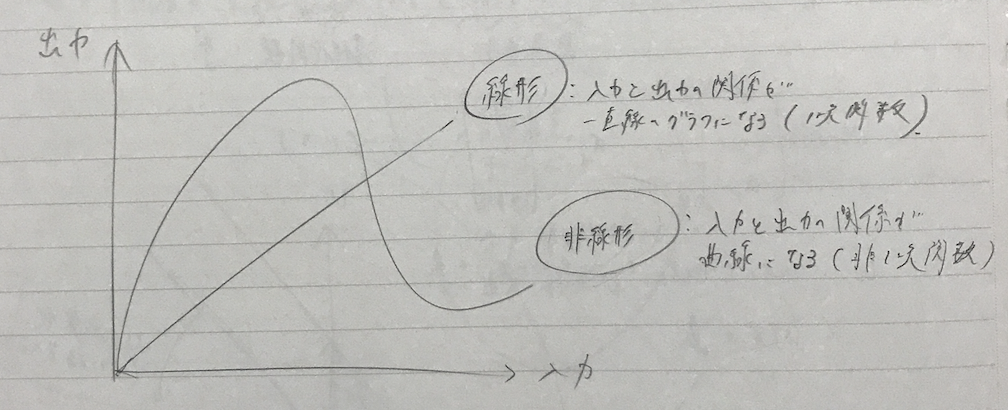 出力
線形 : 入力と出力の関係が
一直線のグラフになる (1次関数)
非線形 : 入力と出力の関係が
曲線になる (非1次関数)
入力